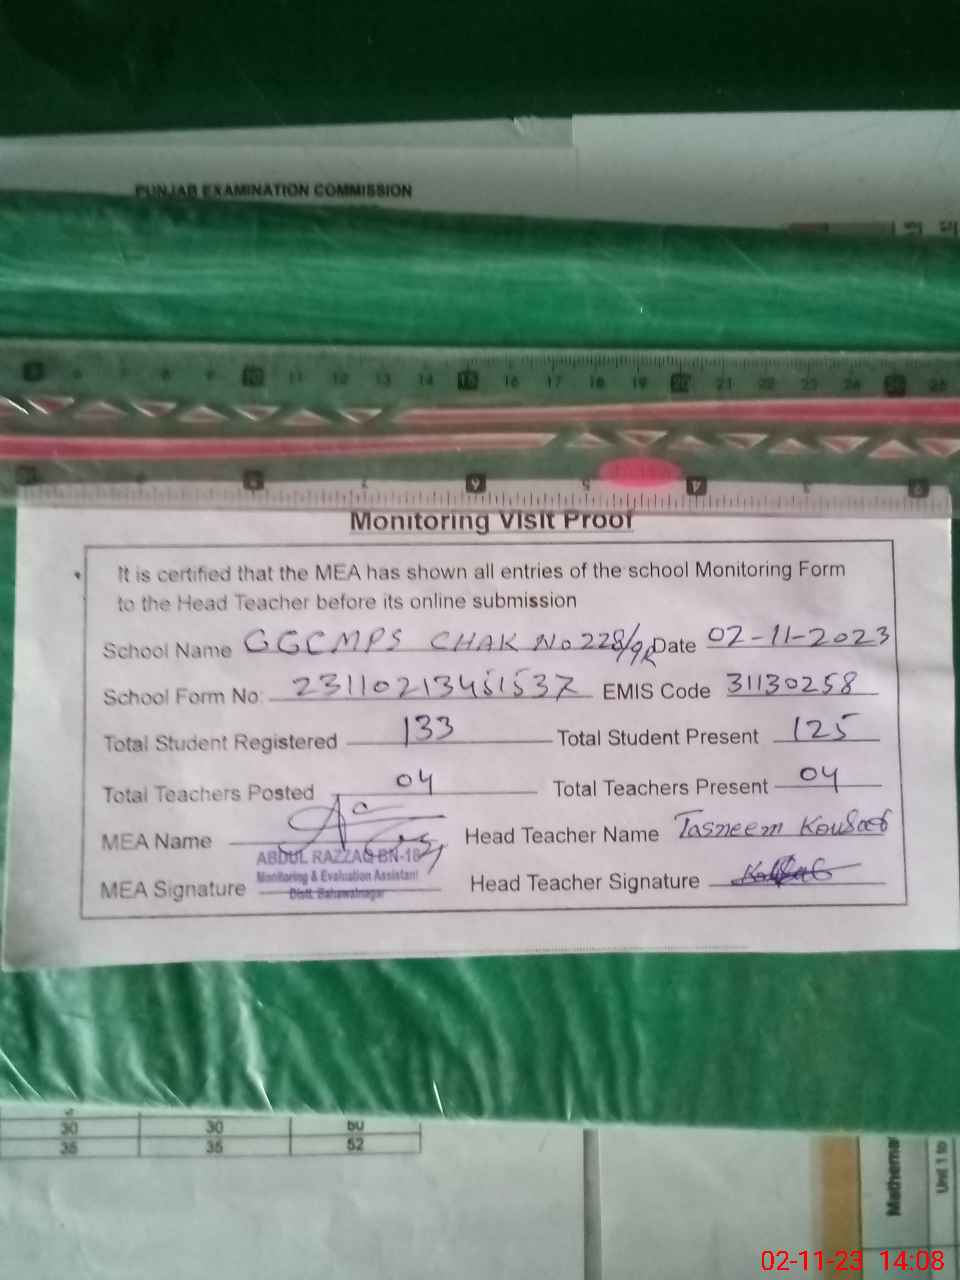 PUNJAB EXAMINATION COMMISSION
10 11 12 13 14 15 16 17 18 19 20 21 22 23 24 25 26
Monitoring Visit Proof
It is certified that the MEA has shown all entries of the school Monitoring Form
to the Head Teacher before its online submission
School Name GGCMPS CHAK No 228/9R Date 02-11-2023
School Form No: EMIS Code 31130258
Total Student Registered 133 Total Student Present 125
Total Teachers Posted 04 Total Teachers Present 04
MEA Name Head Teacher Name Tasneem Kousar
ABDUL RAZZAQ BN-18
Monitoring & Evaluation Assistant
MEA Signature Head Teacher Signature
Distt. Bahawalnagar
30 30
35 35 52
Unit 1 to
02-11-23 14:08